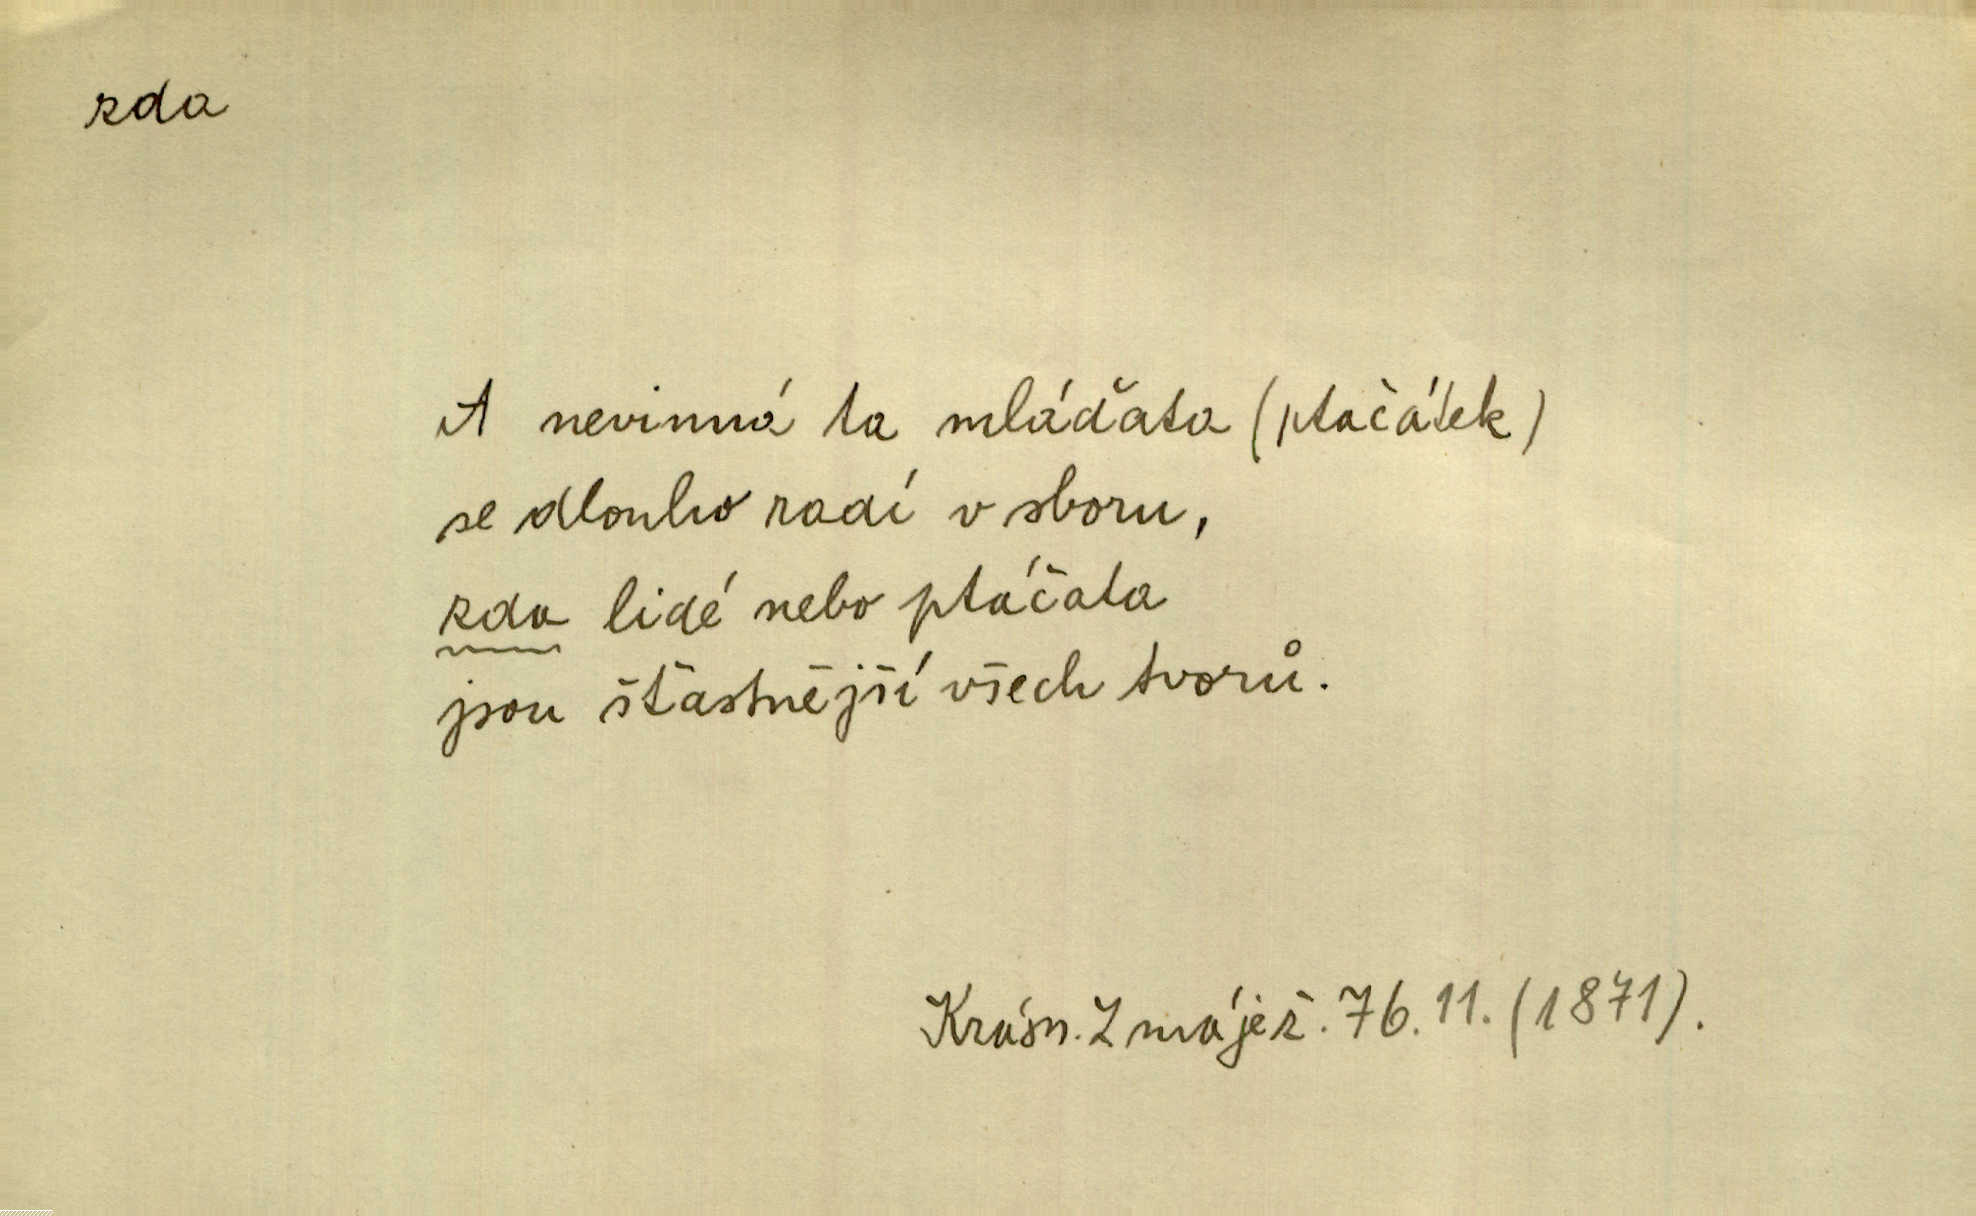 zda
A nevinná ta mláďata (ptačátek)
se dlouho radí v sboru,
zda lidé nebo ptáčata
jsou šťastnější všech tvorů.
Krásn. Z máje ž. 76. 11. (1871).